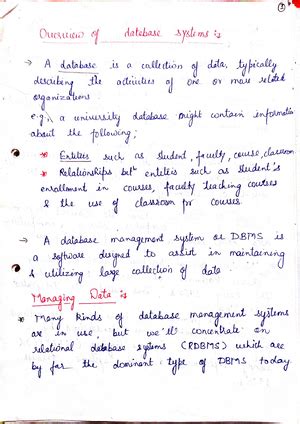 ①
Overview of database systems :-
→ A database is a collection of data, typically
describing the activities of one or more related
organizations.
e.g., a university database might contain information
about the following;
* Entities such as student, faculty, course, classroom
* Relationships betⁿ entities such as student's
enrollment in courses, faculty teaching courses
& the use of classroom for courses.
→ A database management system or DBMS
is a software designed to assist in maintaining
& utilizing large collection of data
Managing Data :-
* Many kinds of database management systems
are in use but we'll concentrate on
relational database systems (RDBMS) which are
by far the dominant type of DBMS today